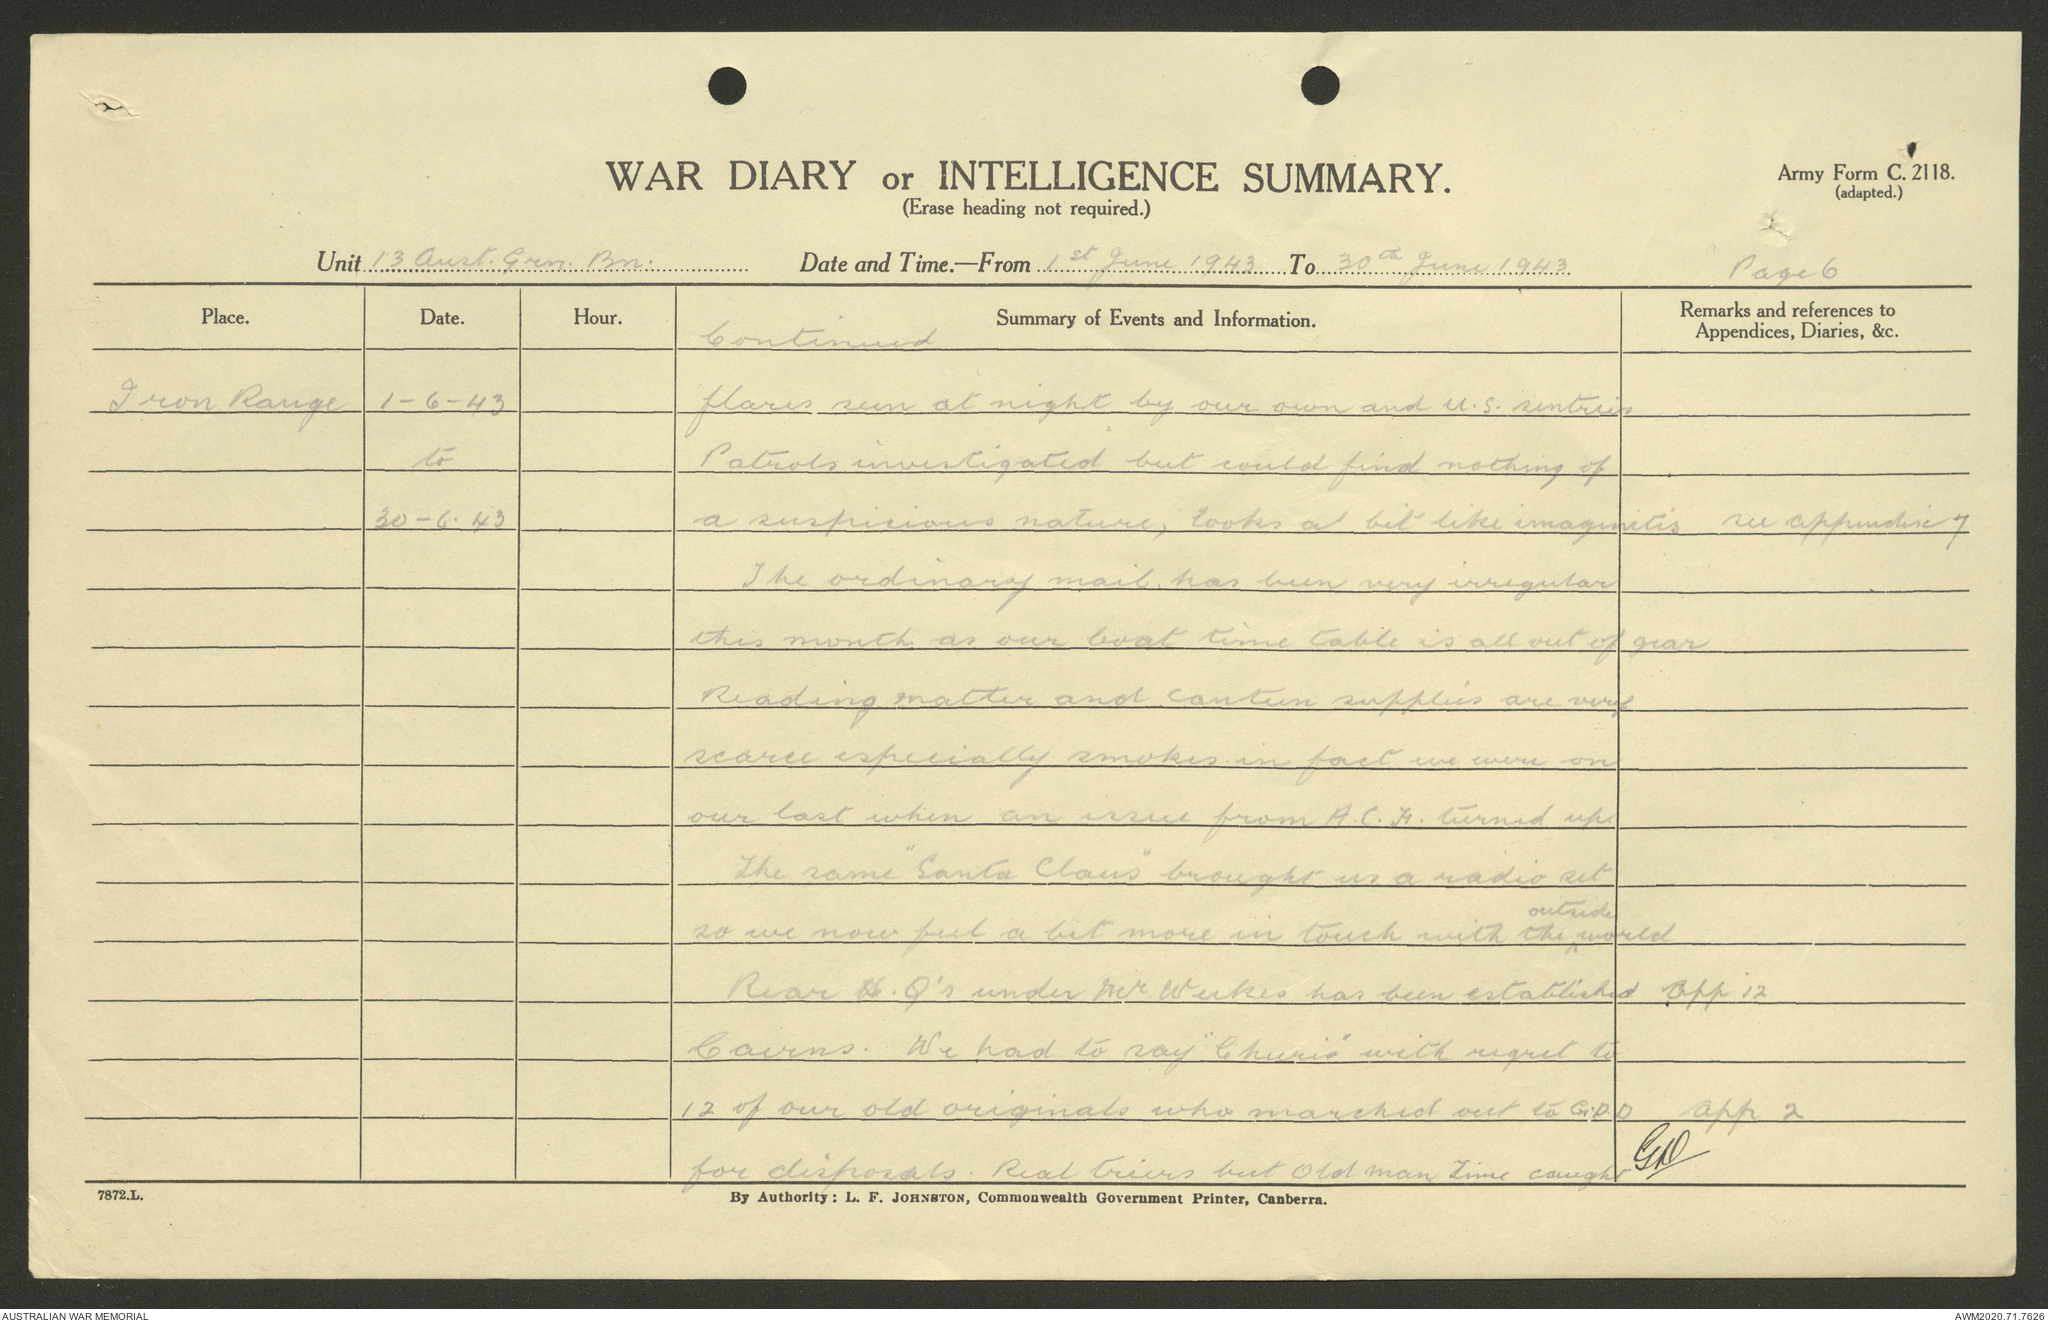 WAR DIARY or INTELLIGENCE SUMMARY.
(Erase heading not required.)
Army Form C. 2118.
(adapted.)
Unit 13 Aust. Grn. Bn. Date and Time.—From 1st June 1943 To 30th June 1943
Page 6
Place. Date. Hour. Summary of Events and Information. Remarks and references to Appendices, Diaries, &c.
Continued
Iron Range 1-6-43 flares seen at night by our own and U.S. sentries
to Patrols investigated but could find nothing of
30-6-43 a suspicious nature, looks a bit like imaginitis see appendix 7
The ordinary mail has been very irregular
this month as our boat time table is all out of gear
Reading matter and canteen supplies are very
scarce especially smokes in fact we were on
our last when an issue from A.C.F. turned up.
The same "Santa Claus" brought us a radio set
so we now feel a bit more in touch with the outside world
Rear H.Q's under Mr Weekes has been established App 12
Cairns. We had to say "Cheerio" with regret to
12 of our old originals who marched out to G.D.D App 2
for disposals. Real triers but Old man Time caught
7872.L.
By Authority: L. F. JOHNSTON, Commonwealth Government Printer, Canberra.
AUSTRALIAN WAR MEMORIAL
AWM2020.71.7626